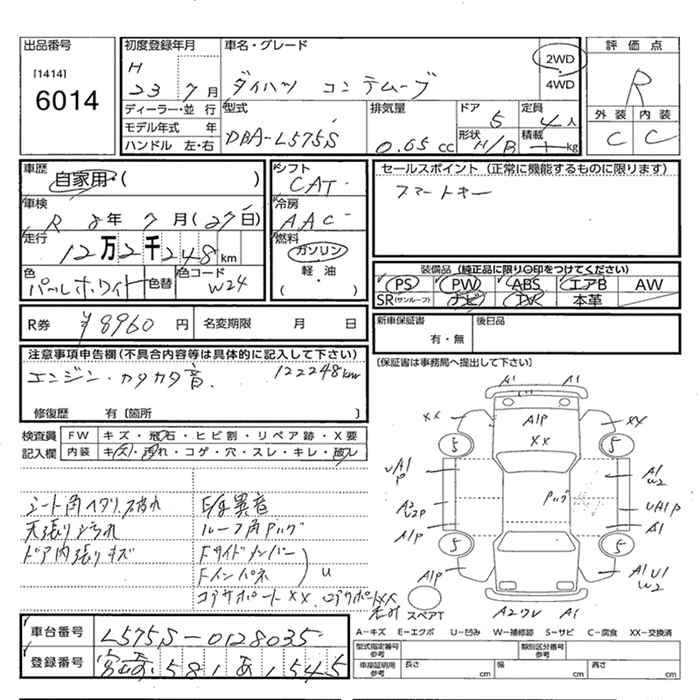 出品番号
[1414]
6014
初度登録年月
H
23 7 月
ディーラー・並 行
モデル年式 年
ハンドル 左・右
車名・グレード
ダイハツ コンテ ムーブ
2WD
4WD
型式
DBA-L575S
排気量
0.65 cc
ドア
5
定員
4 人
形状
H/B
積載
kg
評 価 点
R
外 装
C
内 装
C
車歴
自家用・( )
車検
R 8年 7月 (27日)
走行
12万2千248 km
色
パールホワイト
色替
色コード
W24
シフト
CAT
冷房
AAC
燃料
ガソリン
軽・油
・( )
セールスポイント (正常に機能するものに限ります)
スマートキー
装備品 (純正品に限り〇印をつけてください)
PS PW ABS エアB AW
SR(サンルーフ) ナビ TVR 本革
R券 ¥8960 円 名変期限 月 日
新車保証書
有・無
後日品
[保証書は事務局へ提出して下さい]
注意事項申告欄 (不具合内容等は具体的に記入して下さい)
エンジン・カタカタ音. 122248km
修復歴 有 [箇所 ]
検査員
記入欄
FW キズ・飛石・ヒビ割・リペア跡・X要
内装 キズ・汚れ・コゲ・穴・スレ・キレ・破レ
シート角ヘタリ.スカれ
天張り汚れ
ドア内張りキズ
E/G異音
ルーフ角Pッグ
Fサイドメンバー
Fインパネ
U
コアサポートXX.
A1 A1
XX A1P XX XX
5 5
UA1
P
A2
W2P
A1P
Pッグ
A1
W2
UA1P
A1
5 5
A1P
A1 U1
W2
スペアT
A2ワレ A1
A-キズ E-エクボ U-凹み W-補修跡 S-サビ C-腐食 XX-交換済
型式指定番号
参考
類別区分番号
参考
車庫証明用
参考
長さ cm
幅 cm
高さ cm
車台番号 L575S-0128035
登録番号 581 あ 1545